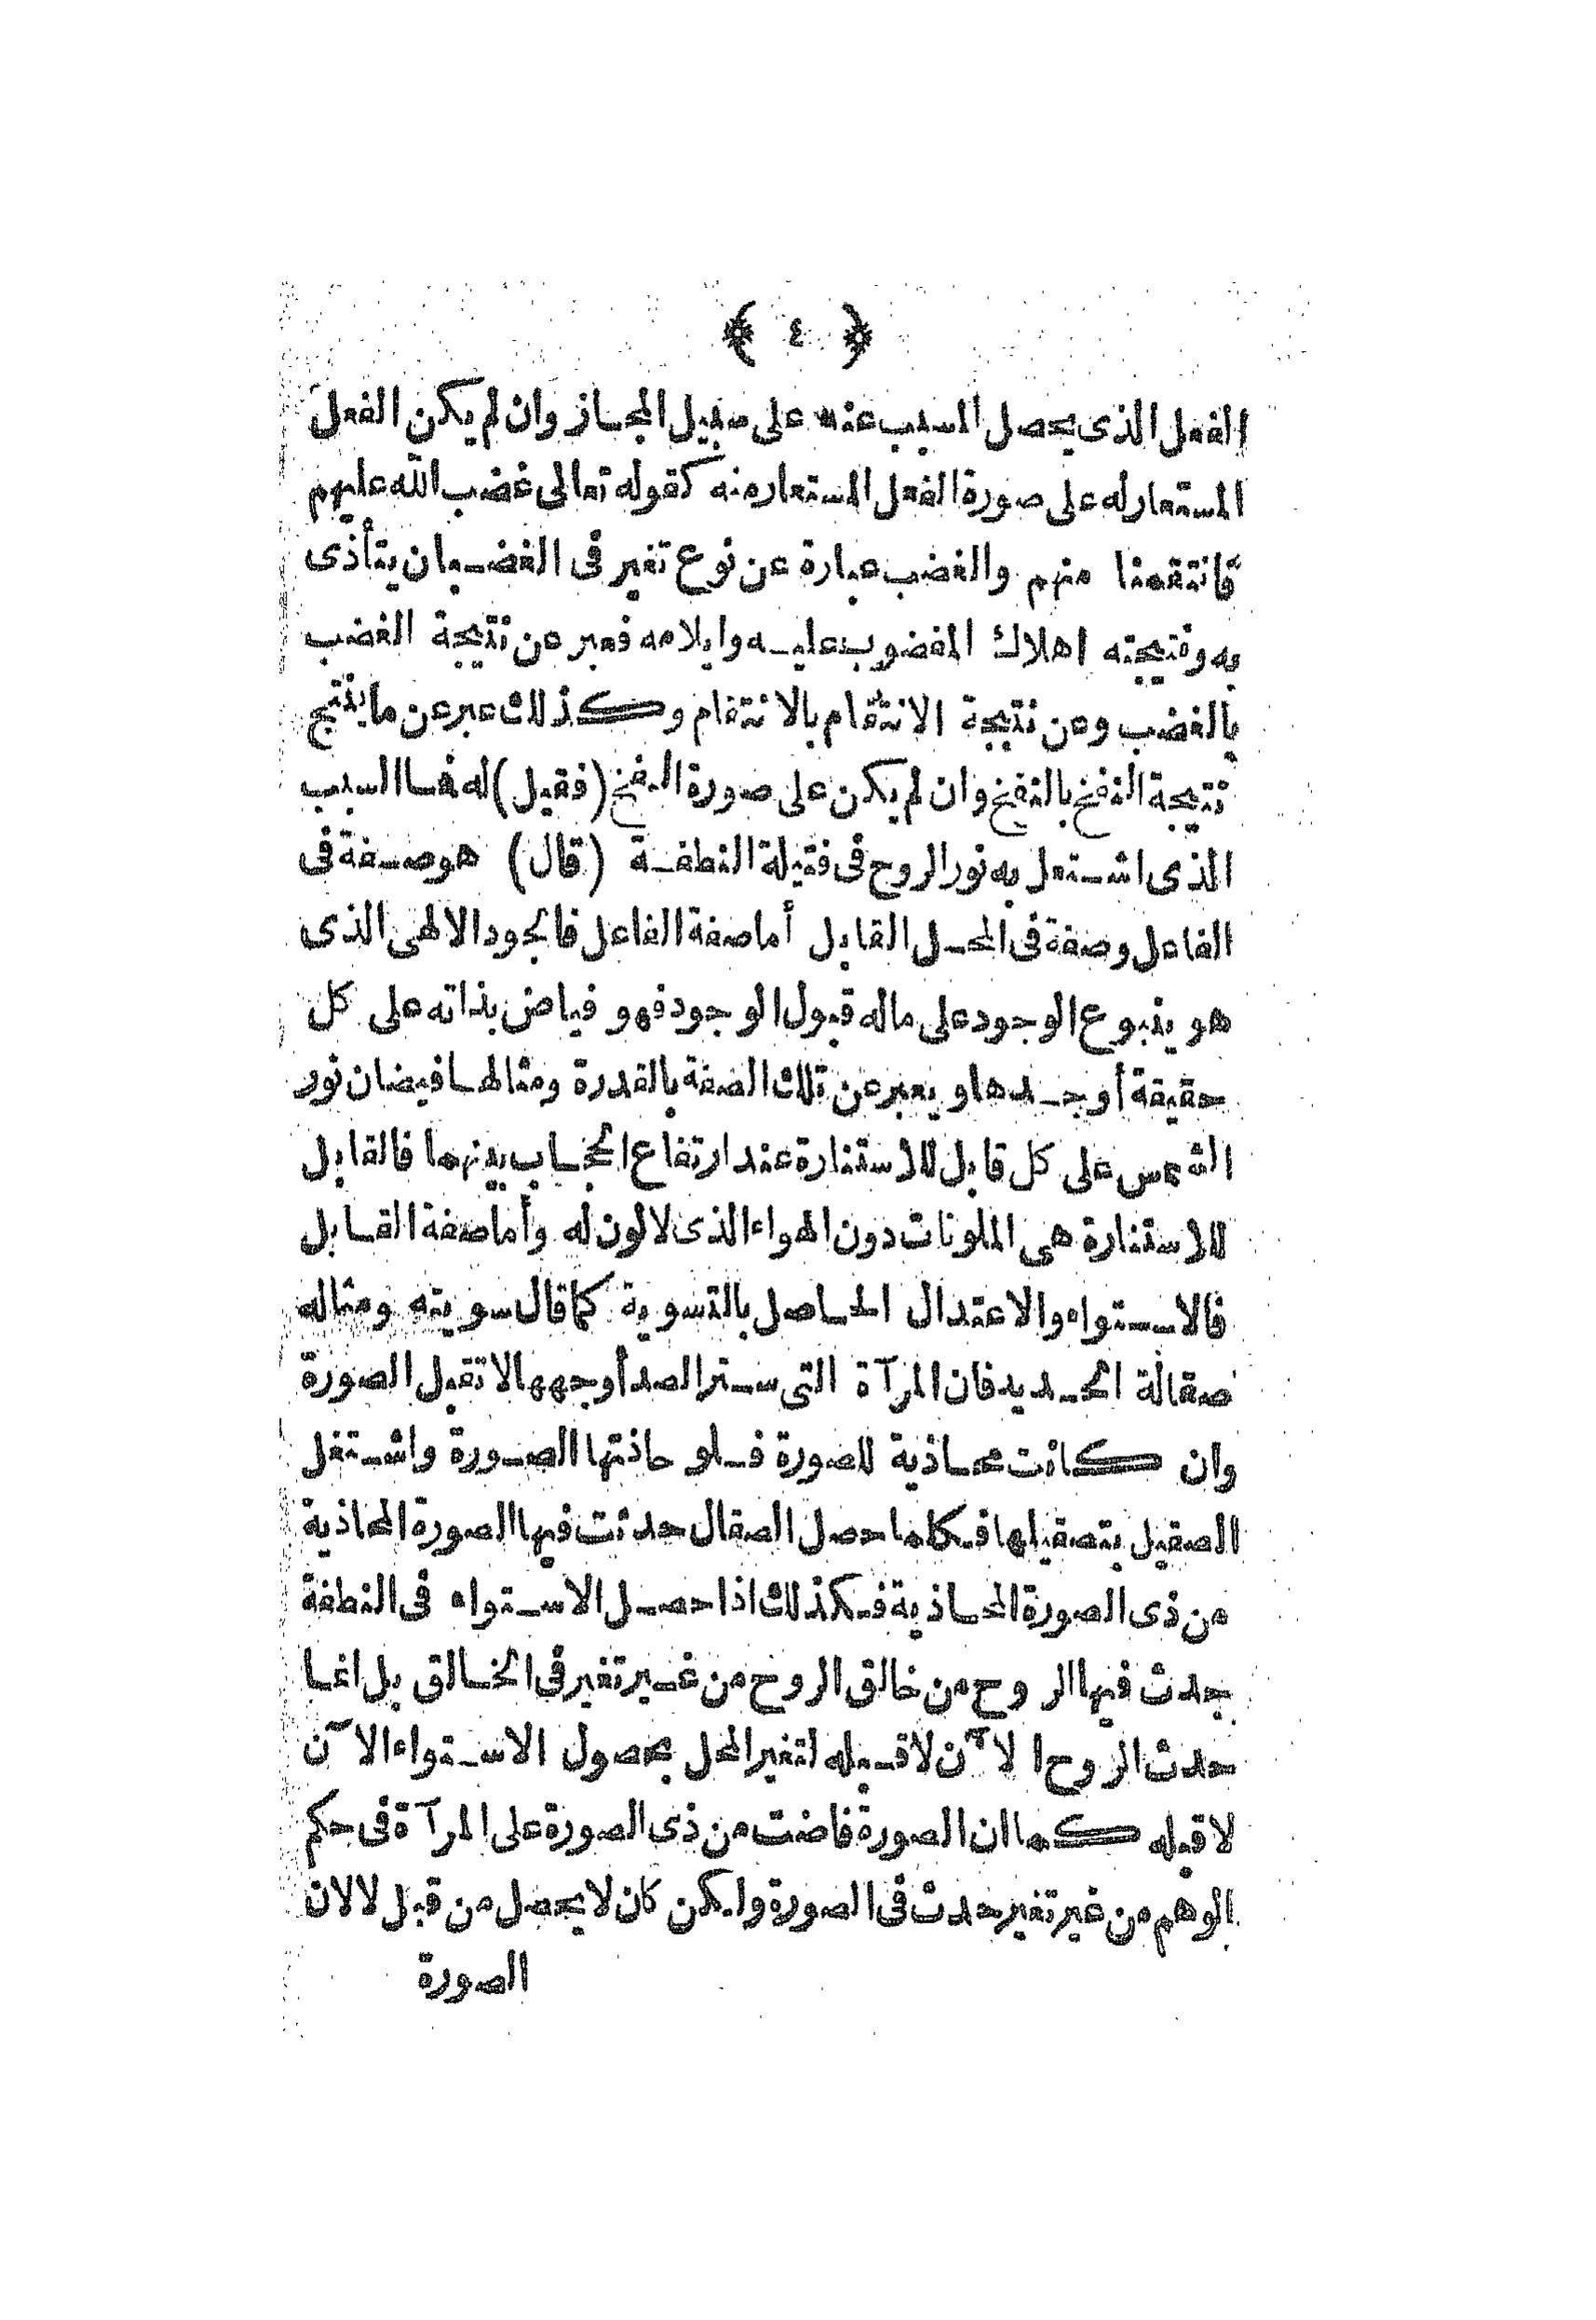 ﴿ ٤ ﴾
الفعل الذى يحصل المسبب عنه على سبيل المجاز وان لم يكن الفعل
المستعارله على صورة الفعل المستعارمنه كقوله تعالى غضب الله عليهم
فانتقمنا منهم والغضب عبارة عن نوع تغير فى الغضبان يتأذى
به ونتيجته اهلاك المغضوب عليه وايلامه فعبر عن نتيجة الغضب
بالغضب وعن نتيجة الانتقام بالانتقام وكذلك عبر عن ما ينتج
نتيجة النفخ بالنفخ وان لم يكن على صورة النفخ (فقيل) له فما السبب
الذى اشتعل به نور الروح فى فتيلة النطفة (قال) هو صفة فى
الفاعل وصفة فى المحل القابل أما صفة الفاعل فالجود الالهى الذى
هو ينبوع الوجود على ماله قبول الوجود فهو فياض بذاته على كل
حقيقة أوجدها ويعبر عن تلك الصفة بالقدرة ومثالها فيضان نور
الشمس على كل قابل للاستنارة عند ارتفاع الحجاب بينهما فالقابل
للاستنارة هى الملونات دون الهواء الذى لا لون له وأما صفة القابل
فالاستواء والاعتدال الحاصل بالتسوية كما قال سويته ومثاله
صقالة الحديد فان المرآة التى ستر الصدأ وجهها لا تقبل الصورة
وان كانت محاذية للصورة فلو حاذتها الصورة واشتغل
الصقيل بتصقيلها فكلما حصل الصقال حدثت فيها الصورة المحاذية
من ذى الصورة المحاذية فكذلك اذا حصل الاستواء فى النطفة
حدث فيها الروح من خالق الروح من غير تغير فى الخالق بل انما
حدث الروح الآن لا قبله لتغير المحل بحصول الاستواء الآن
لا قبله كما ان الصورة فاضت من ذى الصورة على المرآة فى حكم
الوهم من غير تغير حدث فى الصورة ولكن كان لا يحصل من قبل لا لان
الصورة